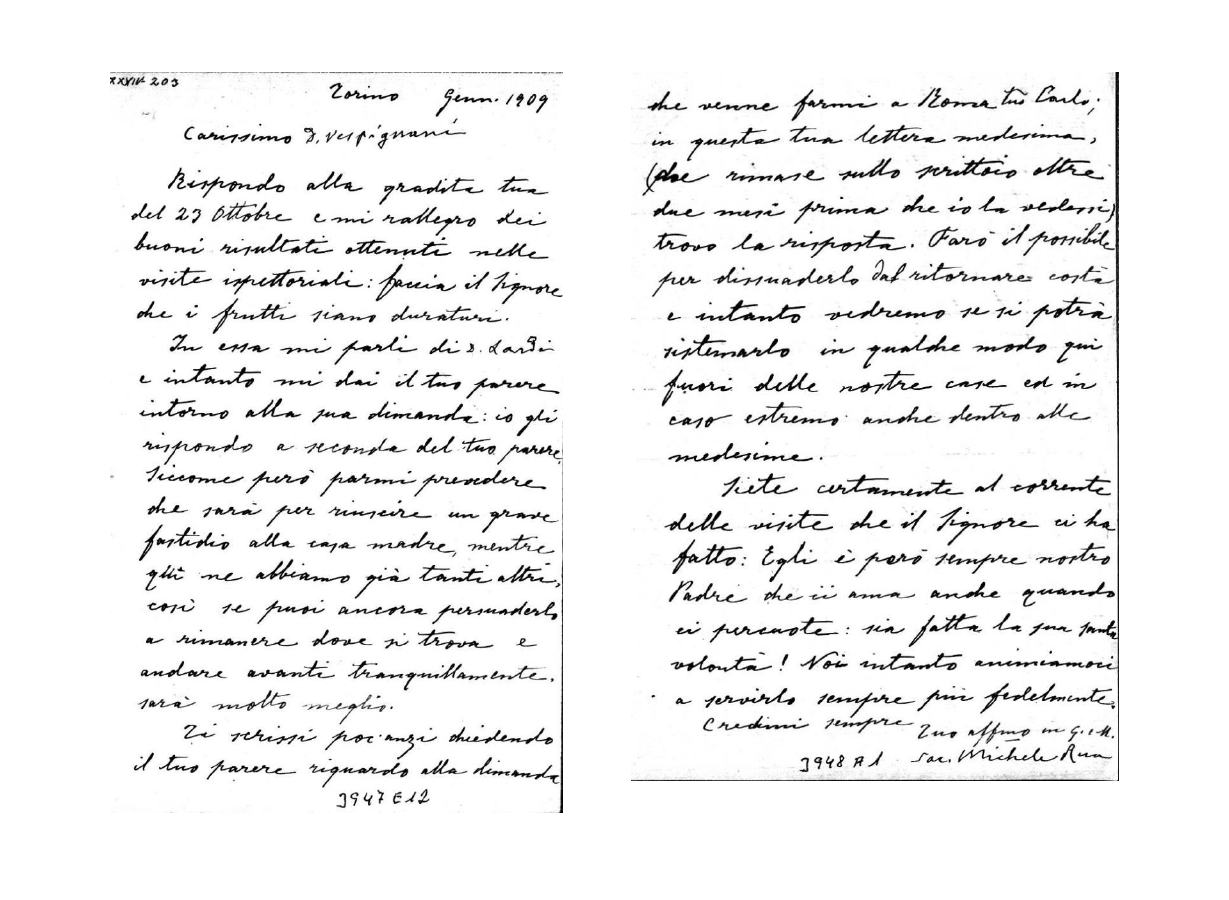 XXVIV 203
Torino Genn. 1909
Carissimo D. Vespignani
Rispondo alla gradita tua
del 23 Ottobre e mi rallegro dei
buoni risultati ottenuti nelle
visite ispettoriali: faccia il Signore
che i frutti siano duraturi.
In essa mi parli di D.
e intanto mi dai il tuo parere
intorno alla sua dimanda: io gli
rispondo a seconda del tuo parere.
Siccome però parmi prevedere
che sarà per riuscire un grave
fastidio alla casa madre, mentre
qui ne abbiamo già tanti altri,
così se puoi ancora persuaderlo
a rimanere dove si trova e
andare avanti tranquillamente.
sarà molto meglio.
Ti scrissi poc'anzi chiedendo
il tuo parere riguardo alla dimanda
3947 E12
che venne farmi a Roma tuo Carlo;
in questa tua lettera medesima,
(che rimase sullo scrittoio oltre
due mesi prima che io la vedessi)
trovo la risposta. Farò il possibile
per dissuaderlo dal ritornare costà
e intanto vedremo se si potrà
sistemarlo in qualche modo qui
fuori delle nostre case ed in
caso estremo anche dentro alle
medesime.
Siete certamente al corrente
delle visite che il Signore ci ha
fatto: Egli è però sempre nostro
Padre che ci ama anche quando
ci percuote: sia fatta la sua santa
volontà! Noi intanto animiamoci
a servirlo sempre più fedelmente.
Credimi sempre Tuo affmo in G. e M.
3948 A1 Sac. Michele Rua